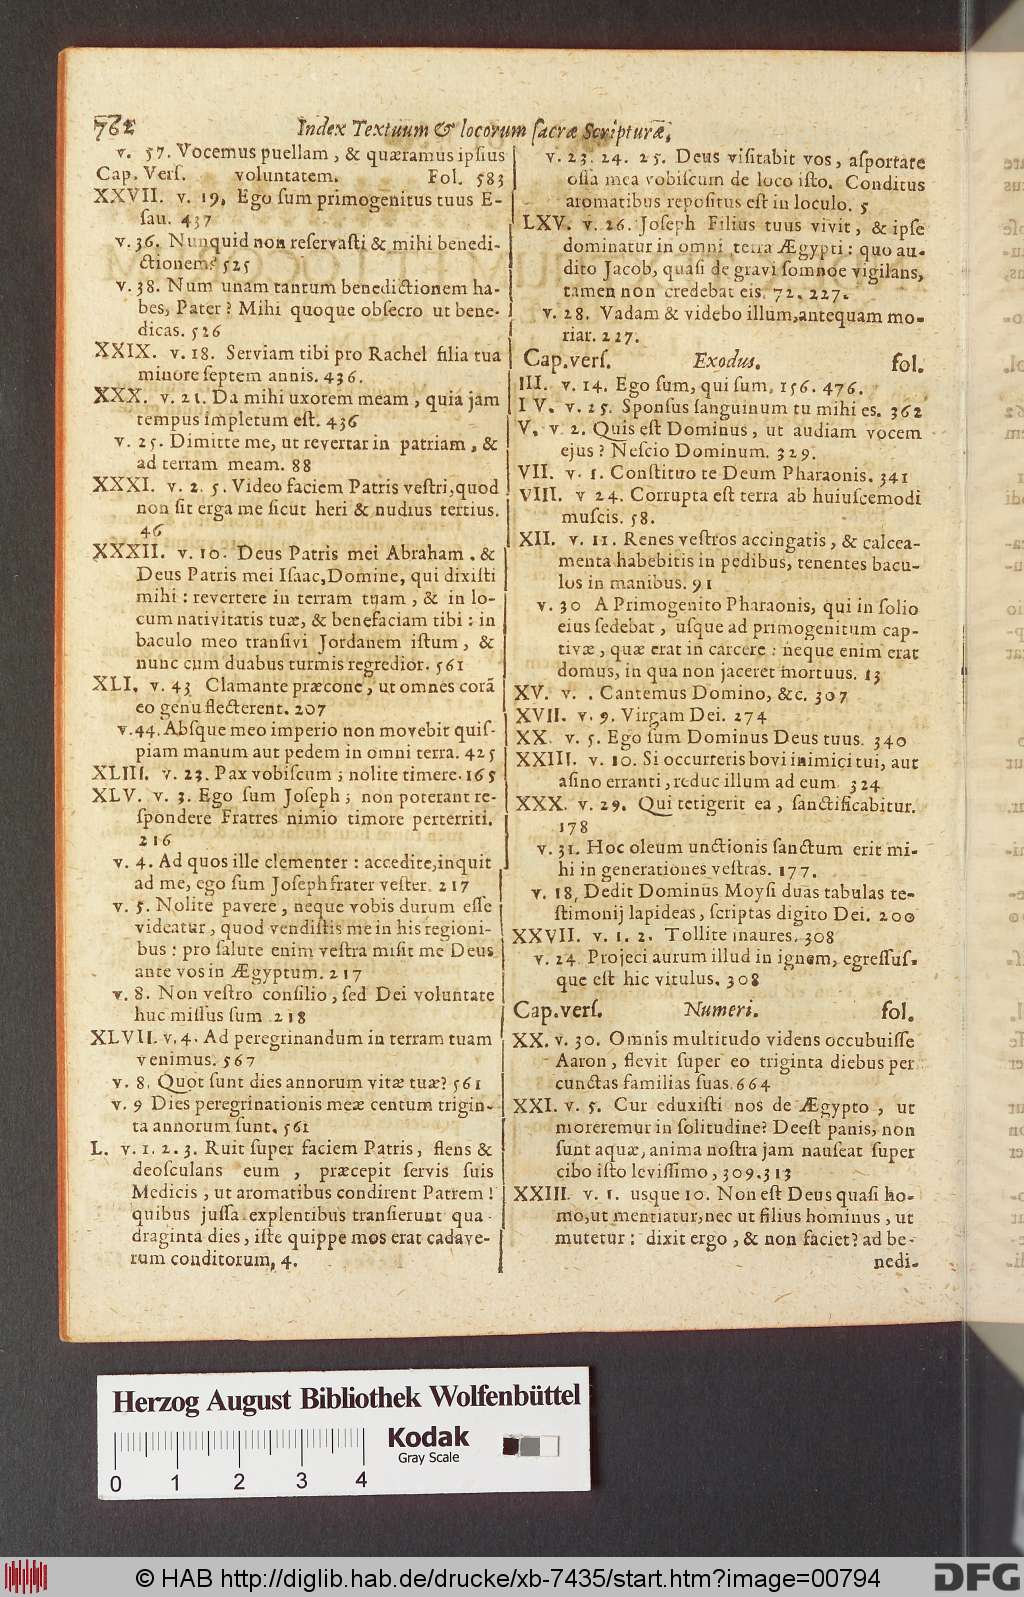 762 Index Textuum & locorum sacræ Scripturæ,
v. 57. Vocemus puellam, & quæramus ipsius
Cap. Vers. voluntatem. Fol. 583
XXVII. v. 19, Ego sum primogenitus tuus E-
sau. 437
v. 36. Nunquid non reservasti & mihi benedi-
ctionem? 525
v. 38. Num unam tantum benedictionem ha-
bes, Pater? Mihi quoque obsecro ut bene-
dicas. 526
XXIX. v. 18. Serviam tibi pro Rachel filia tua
minore septem annis. 436.
XXX. v. 21. Da mihi uxorem meam, quia jam
tempus impletum est. 436
v. 25. Dimitte me, ut revertar in patriam, &
ad terram meam. 88
XXXI. v. 2. 5. Video faciem Patris vestri, quod
non sit erga me sicut heri & nudius tertius.
46
XXXII. v. 10. Deus Patris mei Abraham. &
Deus Patris mei Isaac, Domine, qui dixisti
mihi: revertere in terram tuam, & in lo-
cum nativitatis tuæ, & benefaciam tibi: in
baculo meo transivi Jordanem istum, &
nunc cum duabus turmis regredior. 561
XLI. v. 43 Clamante præcone, ut omnes corã
eo genu flecterent. 207
v. 44. Absque meo imperio non movebit quis-
piam manum aut pedem in omni terra. 425
XLIII. v. 23. Pax vobiscum; nolite timere. 165
XLV. v. 3. Ego sum Joseph; non poterant re-
spondere Fratres nimio timore perterriti.
216
v. 4. Ad quos ille clementer: accedite, inquit
ad me, ego sum Joseph frater vester. 217
v. 5. Nolite pavere, neque vobis durum esse
videatur, quod vendistis me in his regioni-
bus: pro salute enim vestra misit me Deus
ante vos in Ægyptum. 217
v. 8. Non vestro consilio, sed Dei voluntate
huc missus sum 218
XLVII. v. 4. Ad peregrinandum in terram tuam
venimus. 567
v. 8. Quot sunt dies annorum vitæ tuæ? 561
v. 9 Dies peregrinationis meæ centum trigin-
ta annorum sunt. 561
L. v. 1. 2. 3. Ruit super faciem Patris, flens &
deosculans eum, præcepit servis suis
Medicis, ut aromatibus condirent Patrem!
quibus jussa explentibus transierunt qua-
draginta dies, iste quippe mos erat cadave-
rum conditorum, 4.
v. 23. 24. 25. Deus visitabit vos, asportate
ossa mea vobiscum de loco isto. Conditus
aromatibus repositus est in loculo. 5
LXV. v. 26. Joseph Filius tuus vivit, & ipse
dominatur in omni terra Ægypti: quo au-
dito Jacob, quasi de gravi somnoe vigilans,
tamen non credebat eis. 72. 227.
v. 28. Vadam & videbo illum, antequam mo-
riar. 227.
Cap. vers. Exodus. fol.
III. v. 14. Ego sum, qui sum, 156. 476.
IV. v. 25. Sponsus sanguinum tu mihi es. 362
V. v. 2. Quis est Dominus, ut audiam vocem
ejus? Nescio Dominum. 329.
VII. v. 1. Constituo te Deum Pharaonis. 341
VIII. v 24. Corrupta est terra ab huiuscemodi
muscis. 58.
XII. v. 11. Renes vestros accingatis, & calcea-
menta habebitis in pedibus, tenentes bacu-
los in manibus. 91
v. 30 A Primogenito Pharaonis, qui in solio
eius sedebat, usque ad primogenitum cap-
tivæ, quæ erat in carcere: neque enim erat
domus, in qua non jaceret mortuus. 13
XV. v. . Cantemus Domino, &c. 307
XVII. v. 9. Virgam Dei. 274
XX. v. 5. Ego sum Dominus Deus tuus. 340
XXIII. v. 10. Si occurreris bovi inimici tui, aut
asino erranti, reduc illum ad eum 324
XXX. v. 29. Qui tetigerit ea, sanctificabitur.
178
v. 31. Hoc oleum unctionis sanctum erit mi-
hi in generationes vestras. 177.
v. 18, Dedit Dominus Moysi duas tabulas te-
stimonij lapideas, scriptas digito Dei. 200
XXVII. v. 1. 2. Tollite inaures. 308
v. 24 Projeci aurum illud in ignem, egressus-
que est hic vitulus. 308
Cap. vers. Numeri. fol.
XX. v. 30. Omnis multitudo videns occubuisse
Aaron, flevit super eo triginta diebus per
cunctas familias suas. 664
XXI. v. 5. Cur eduxisti nos de Ægypto, ut
moreremur in solitudine? Deest panis, non
sunt aquæ, anima nostra jam nauseat super
cibo isto levissimo, 309. 313
XXIII. v. 1. usque 10. Non est Deus quasi ho-
mo, ut mentiatur, nec ut filius hominus, ut
mutetur: dixit ergo, & non faciet? ad be-
nedi-
Herzog August Bibliothek Wolfenbüttel
Kodak
Gray Scale
0 1 2 3 4
© HAB http://diglib.hab.de/drucke/xb-7435/start.htm?image=00794
DFG